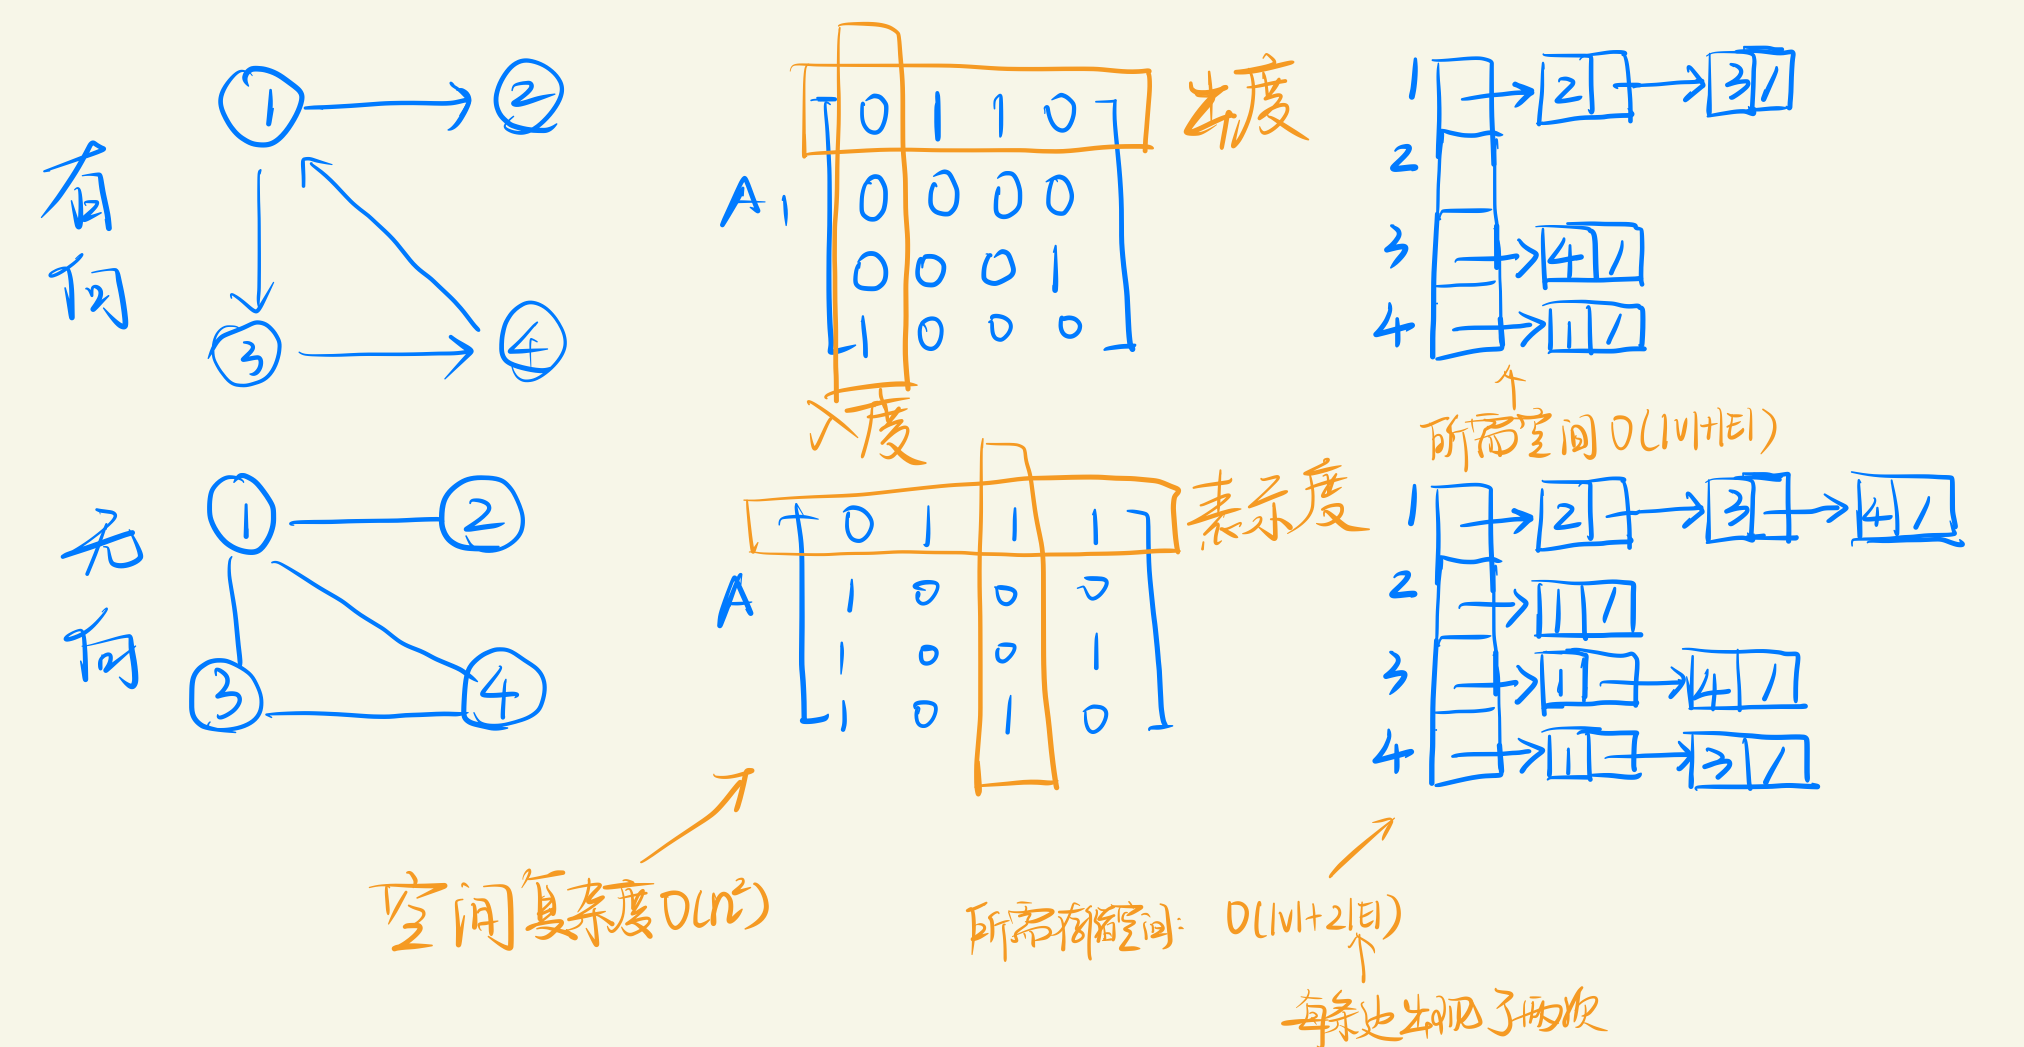 有向
1
2
3
4
A₁
0 1 1 0
0 0 0 0
0 0 0 1
1 0 0 0
出度
入度
1 2 3 /
2
3 4 /
4 1 /
所需空间 O(|V|+|E|)
无向
1
2
3
4
A
0 1 1 1
1 0 0 0
1 0 0 1
1 0 1 0
表示度
1 2 3 4 /
2 1 /
3 1 4 /
4 1 3 /
空间复杂度O(n²)
所需存储空间: O(|V|+2|E|)
每条边出现了两次